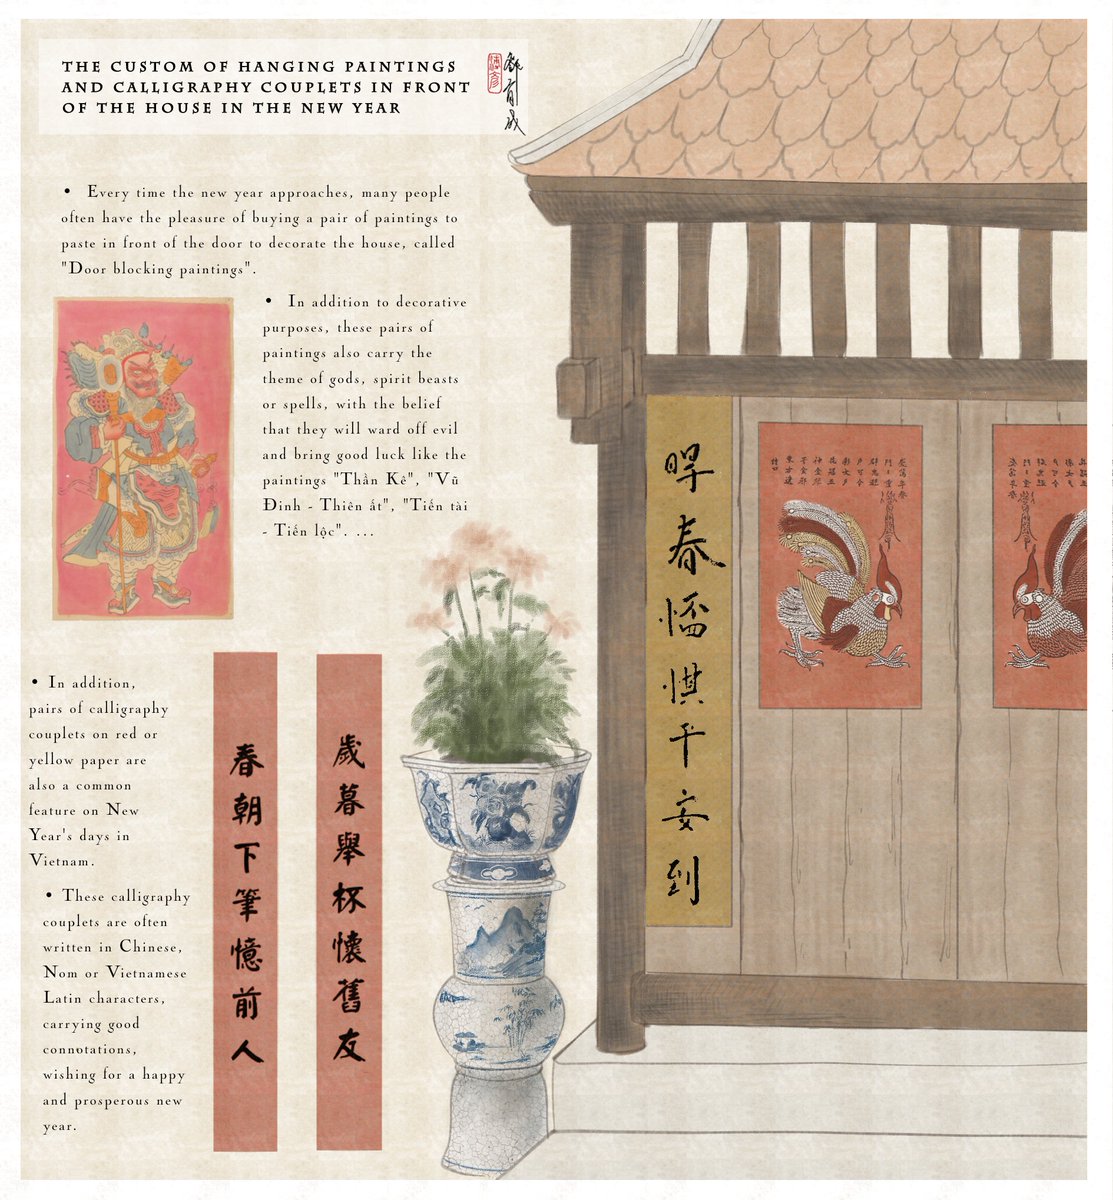 THE CUSTOM OF HANGING PAINTINGS
AND CALLIGRAPHY COUPLETS IN FRONT
OF THE HOUSE IN THE NEW YEAR
• Every time the new year approaches, many people
often have the pleasure of buying a pair of paintings to
paste in front of the door to decorate the house, called
"Door blocking paintings".
• In addition to decorative
purposes, these pairs of
paintings also carry the
theme of gods, spirit beasts
or spells, with the belief
that they will ward off evil
and bring good luck like the
paintings "Thần Kê", "Vũ
Đinh - Thiên ất", "Tiến tài
- Tiến lộc". ...
• In addition,
pairs of calligraphy
couplets on red or
yellow paper are
also a common
feature on New
Year's days in
Vietnam.
• These calligraphy
couplets are often
written in Chinese,
Nom or Vietnamese
Latin characters,
carrying good
connotations,
wishing for a happy
and prosperous new
year.
歲暮舉杯懷舊友
春朝下筆憶前人
春
平安到